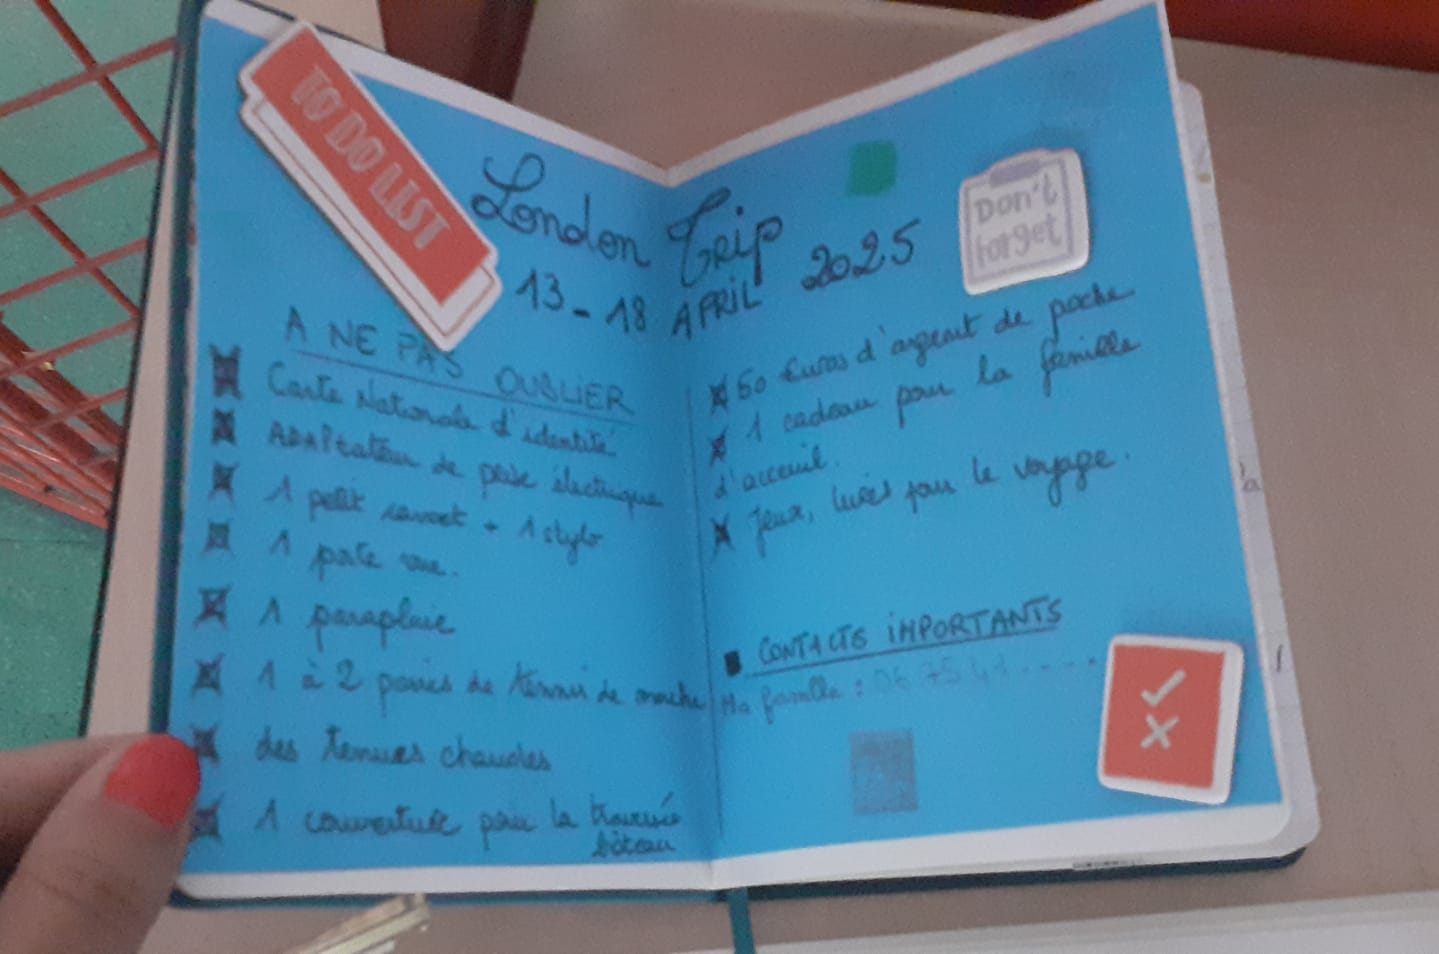 TO DO LIST
London Trip
13 - 18 APRIL 2025
Don't
forget
A NE PAS OUBLIER
Carte Nationale d'identité
ADAPtateur de prise électrique
1 petit carnet + 1 stylo
1 porte vue.
1 parapluie
1 à 2 paires de tennis de marche
des tenues chaudes
1 couverture pour la traversée
bâteau
60 Euros d'argent de poche
1 cadeau pour la famille
d'acceuil.
Jeux, livres pour le voyage.
CONTACTS IMPORTANTS
Ma famille : 06 75 41 . . . . .